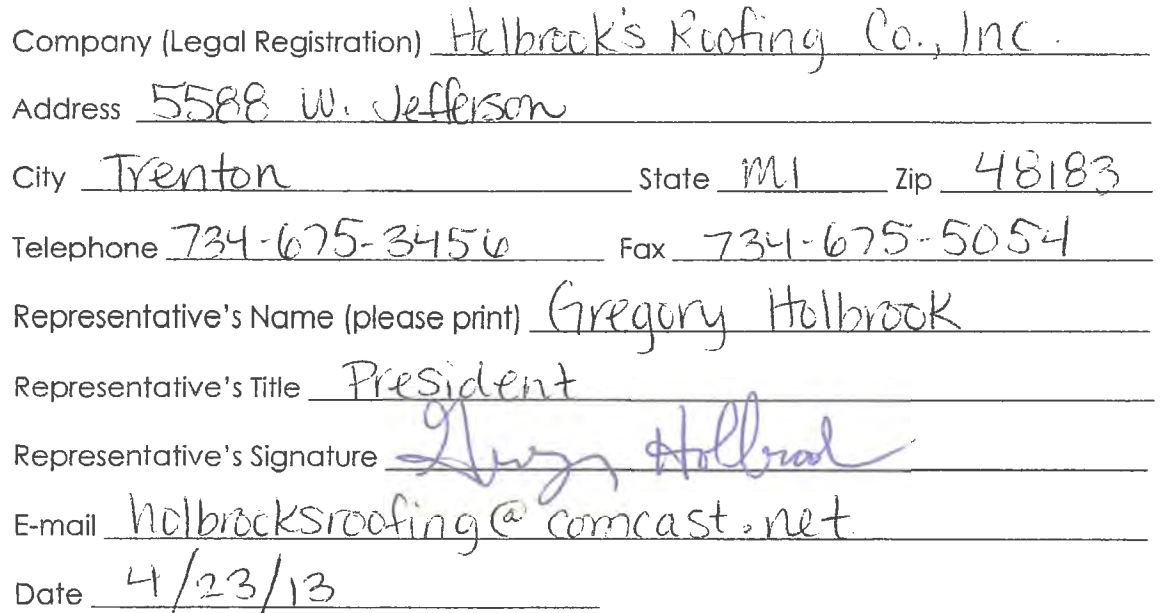 Company (Legal Registration) Holbrook's Roofing Co., Inc.
Address 5588 W. Jefferson
City Trenton State MI Zip 48183
Telephone 734-675-3456 Fax 734-675-5054
Representative's Name (please print) Gregory Holbrook
Representative's Title President
Representative's Signature Gregory Holbrook
E-mail holbrooksroofing@comcast.net
Date 4/23/13